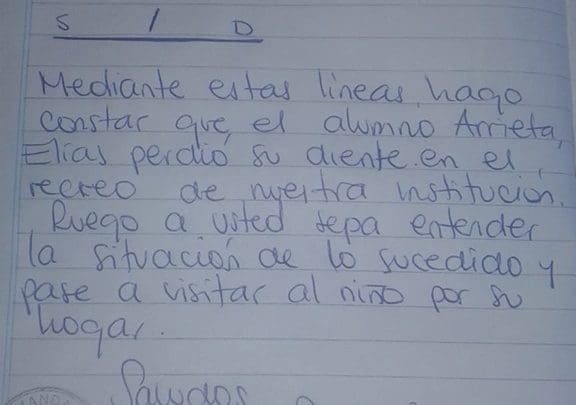 S / D
Mediante estas lineas, hago
constar que el alumno Arrieta,
Elias perdió su diente en el
recreo de nuestra institución.
Ruego a usted sepa entender
la situación de lo sucedido y
pase a visitar al niño por su
hogar.
Saludos